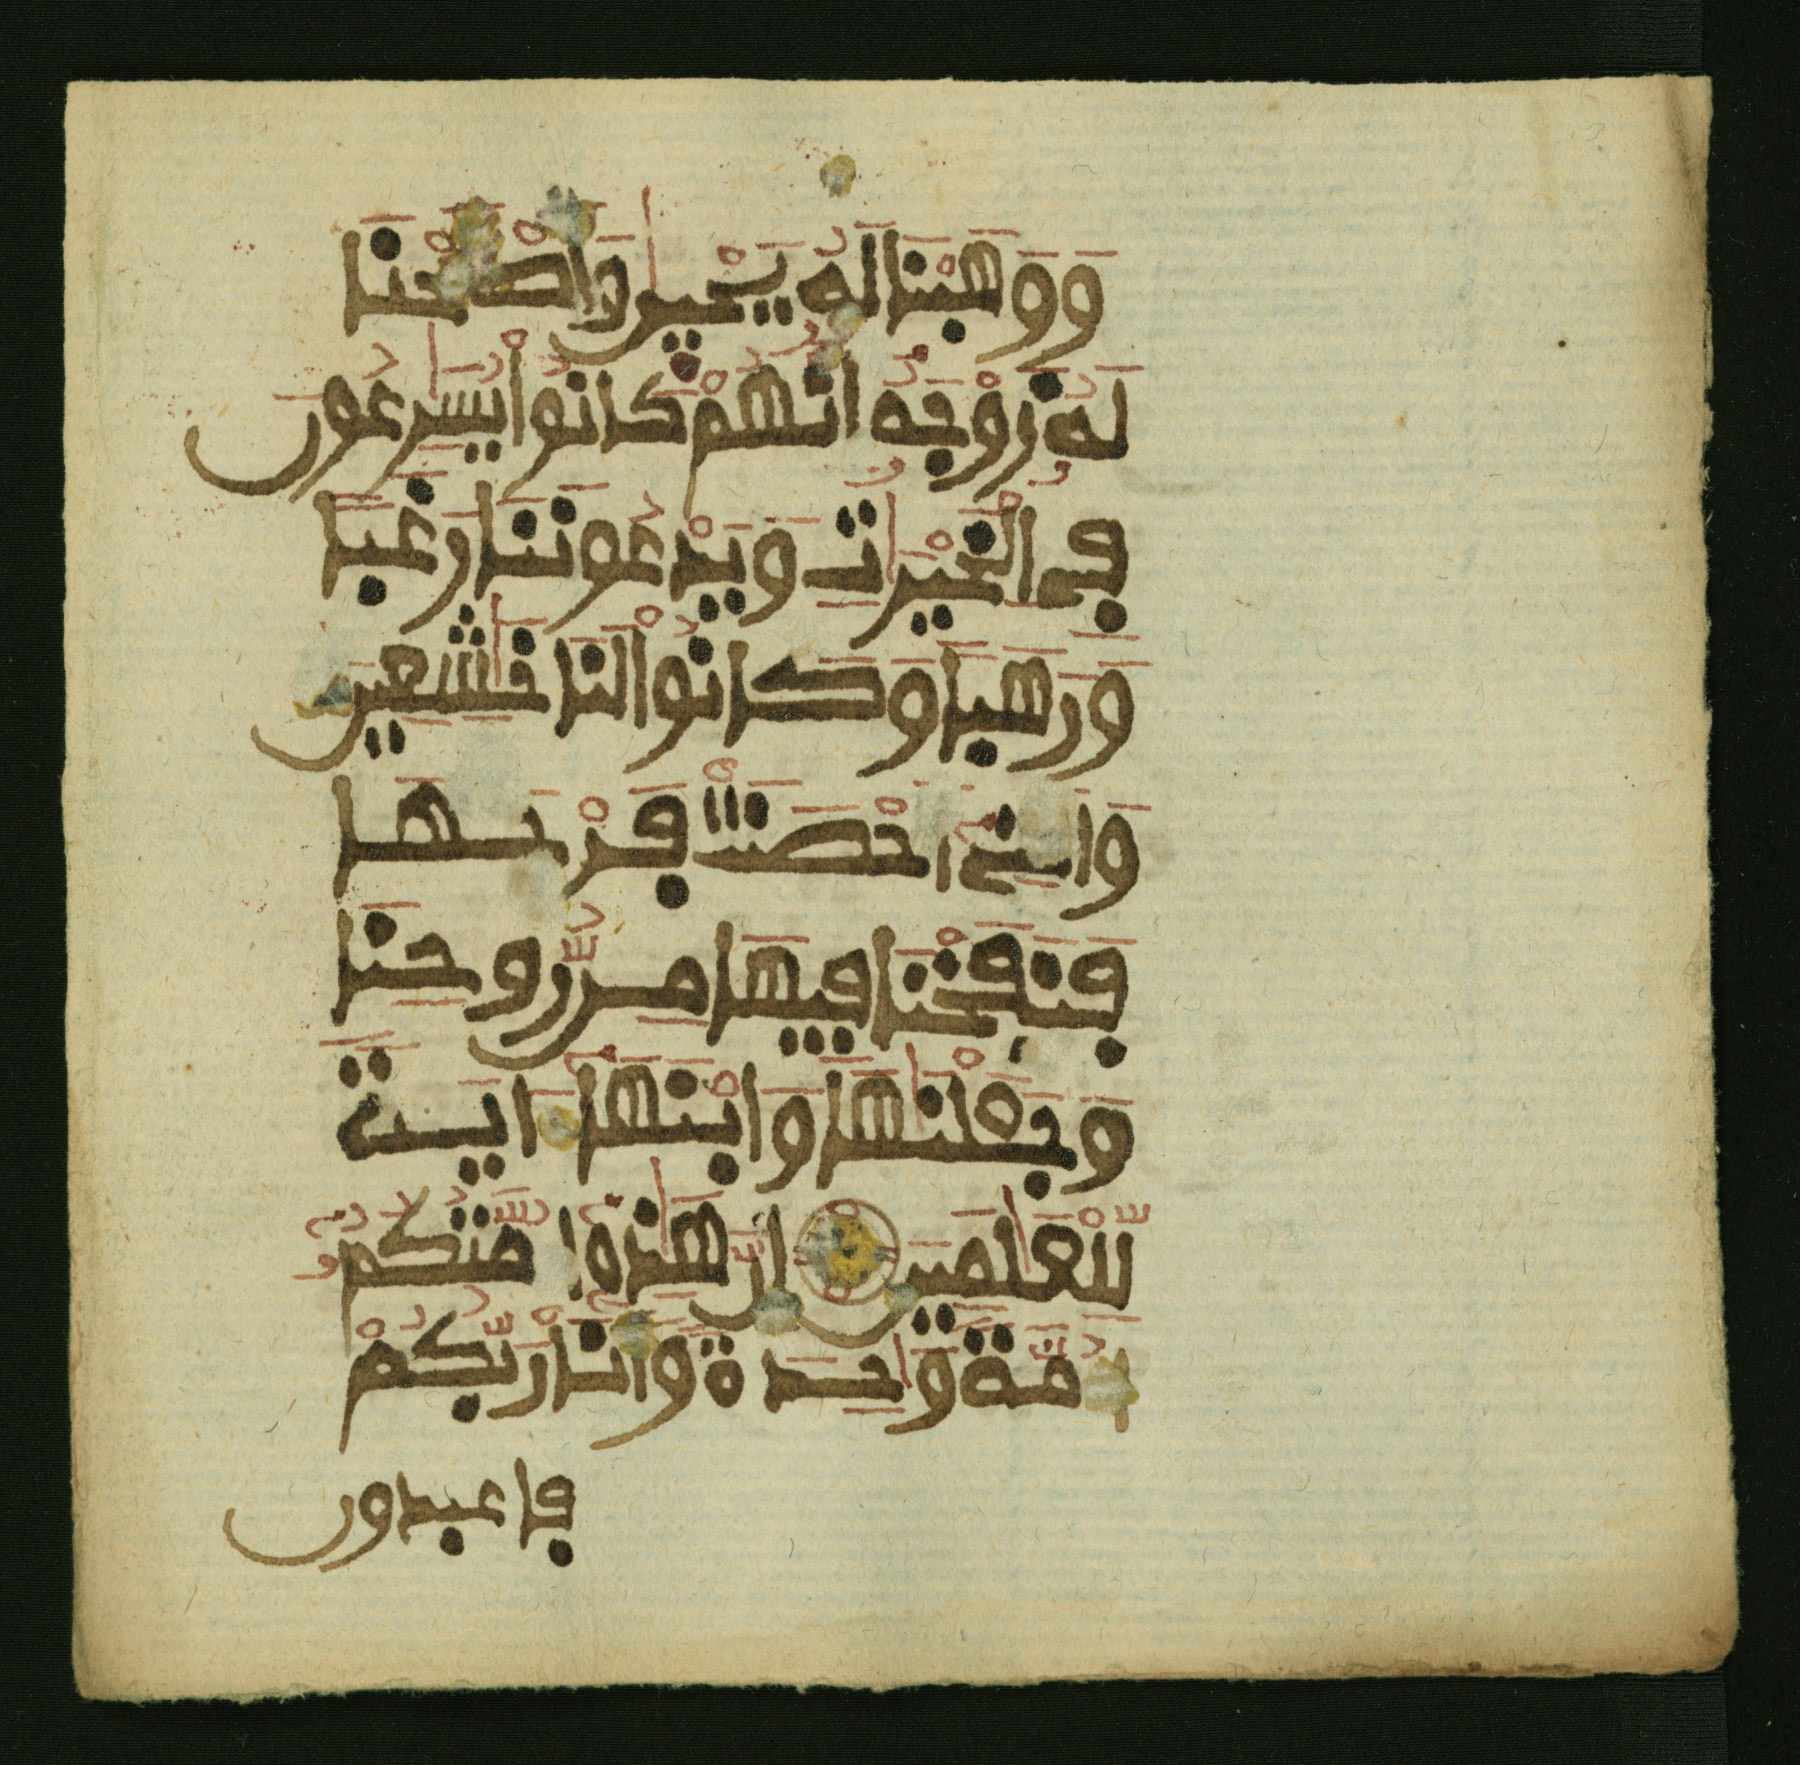 وَوَهَبْنَا لَهُ يَحْيىٰ وَأَصْلَحْنَا
لَهُ زَوْجَهُ إِنَّهُمْ كَانُوا يُسَٰرِعُونَ
فِي الْخَيْرَٰتِ وَيَدْعُونَنَا رَغَبًا
وَرَهَبًا وَكَانُوا لَنَا خَٰشِعِينَ
وَالَّتِي أَحْصَنَتْ فَرْجَهَا
فَنَفَخْنَا فِيهَا مِن رُّوحِنَا
وَجَعَلْنَٰهَا وَابْنَهَا ءَايَةً
لِّلْعَٰلَمِينَ إِنَّ هَٰذِهِ أُمَّتُكُمُ
أُمَّةً وَٰحِدَةً وَأَنَا رَبُّكُمْ
فاعبدون